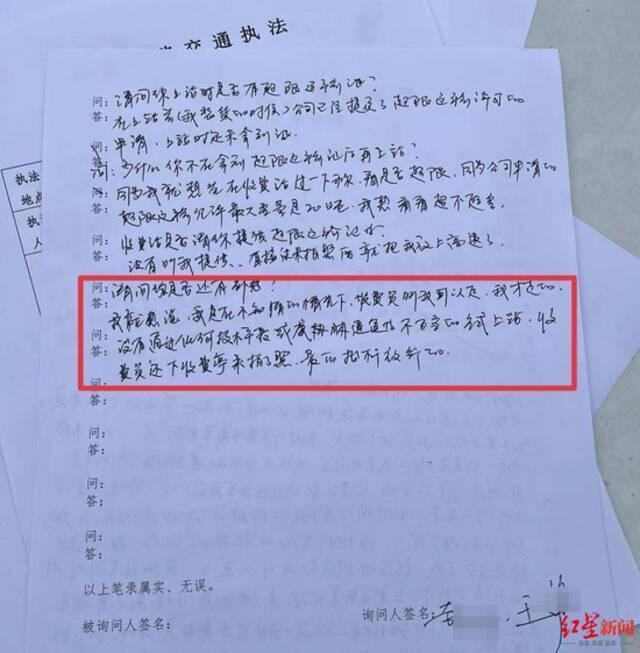 交通执法
执法
地点
执
人
问:请问你上站时是否有超限运输证?
答:在上站前(我装货的时候)公司已经提交了超限运输许可的
问:申请,上站时还未拿到证.
问:为什么你不在拿到超限运输证后再上站?
问:因为我就想先在收费站过一下磅,看是否超限,因为公司申请的
答:超限运输允许最大重量是20吨,我想看看超不超重.
问:收费站是否请你提供超限运输证件
答:没有叫我提供,直接出来拍照后就把我放上高速了
问:请问你是否还有补充?
答:我就想说,我是在不知情的情况下,收费员叫我可以走,我才走的.
问:没有通过任何技术手段或
答:费员还下收费亭来拍了照,最后抬杆放行的.
问:
答:
问:
答:
问:
答:
问:
答:
以上笔录属实、无误。
被询问人签名:
询问人签名:
王
红星新闻